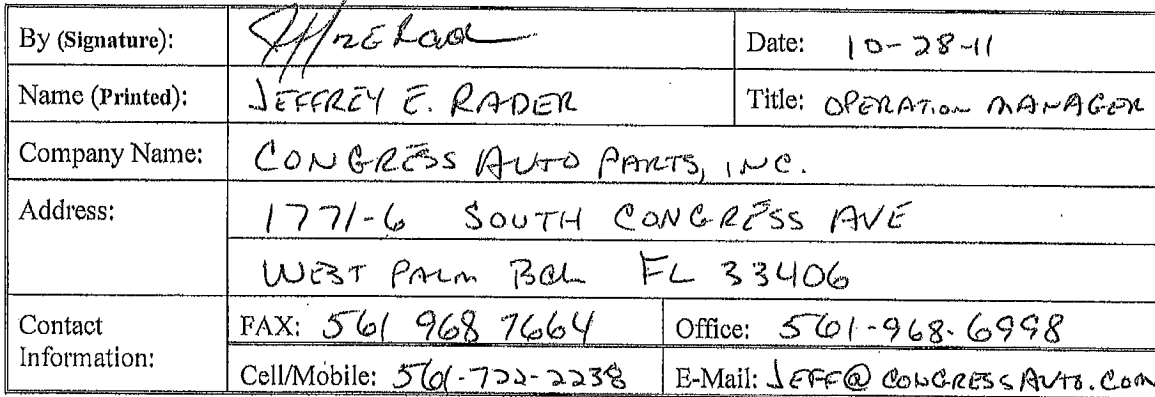 By (Signature): Date: 10-28-11
Name (Printed): JEFFREY E. RADER Title: OPERATION MANAGER
Company Name: CONGRESS AUTO PARTS, INC.
Address: 1771-6 SOUTH CONGRESS AVE
WEST PALM BCH FL 33406
Contact Information: FAX: 561 968 7664 Office: 561-968-6998
Cell/Mobile: 561-722-2238 E-Mail: JEFF@CONGRESSAUTO.COM